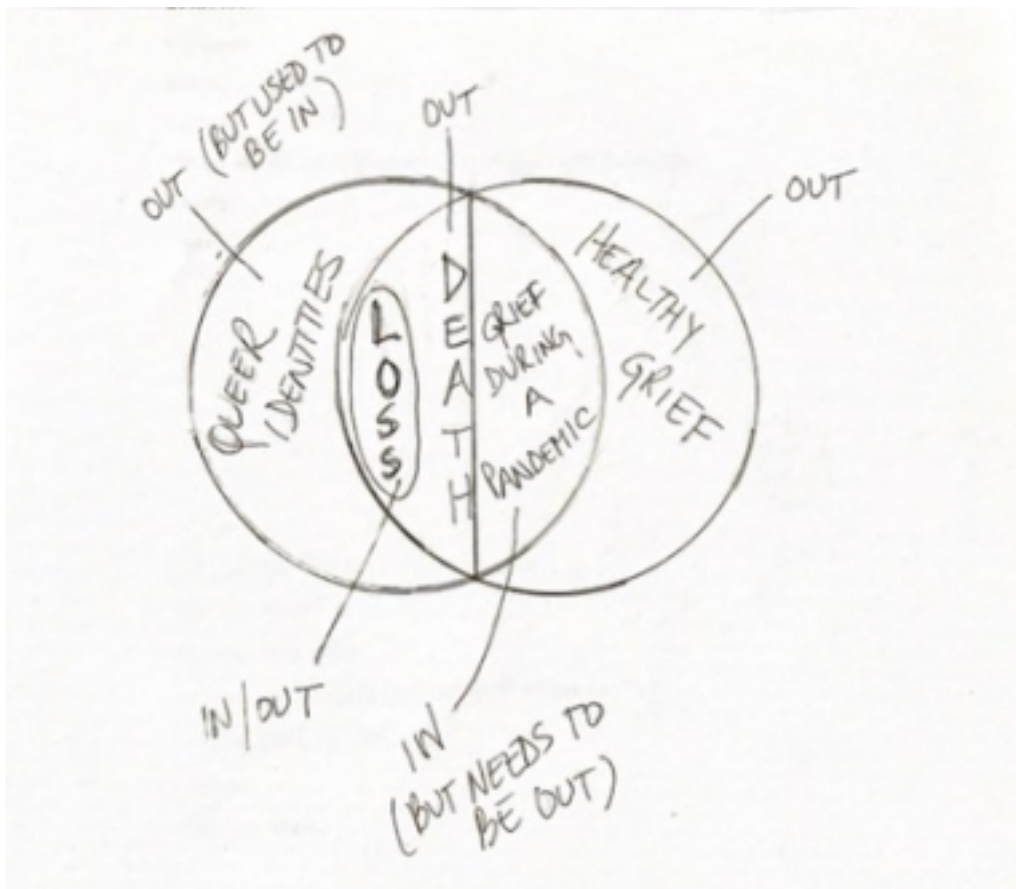 OUT (BUT USED TO
BE IN)
OUT
OUT
QUEER
IDENTITIES
LOSS
DEATH
GRIEF
DURING
A
PANDEMIC
HEALTHY
GRIEF
IN/OUT
IN
(BUT NEEDS TO
BE OUT)